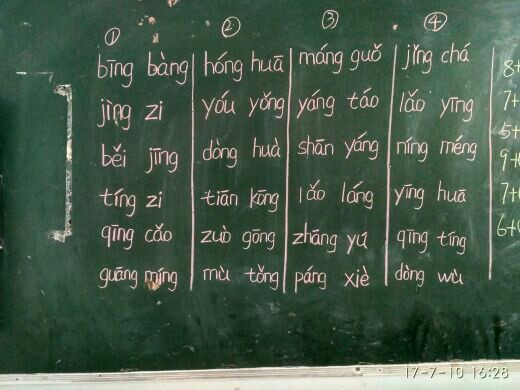 ① ② ③ ④
bīng bàng hóng huā máng guǒ jǐng chá
jìng zi yóu yǒng yáng táo lǎo yīng
běi jīng dòng huà shān yáng níng méng
tíng zi tiān kōng lǎo láng yīng huā
qīng cǎo zuò gōng zhāng yú qīng tíng
guāng míng mù tǒng páng xiè dòng wù
8+
7+
5+
9+
7+
6+
17-7-10 16:28